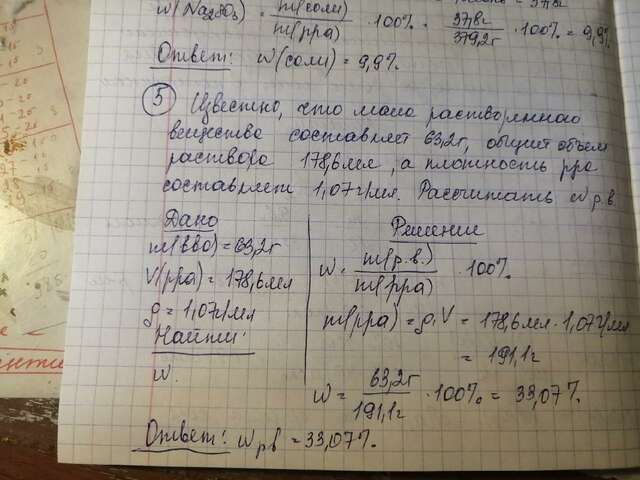 w(Na₂SO₃) = m(соли) / m(рра) · 100% = 37,8г / 379,2г · 100% = 9,9%
Ответ: w(соли) = 9,9%.
5 Известно, что масса растворенного
вещества составляет 63,2г, общий объем
раствора 178,6мл, а плотность рра
составляет 1,07г/мл. Рассчитать w р.в.
Дано
m(вва) = 63,2г
V(рра) = 178,6мл
ρ = 1,07г/мл
Найти:
w.
Решение
w = m(р.в.) / m(рра) · 100%
m(рра) = ρ·V = 178,6мл · 1,07г/мл
= 191,1г
w = 63,2г / 191,1г · 100% = 33,07%
Ответ: w рв = 33,07%.